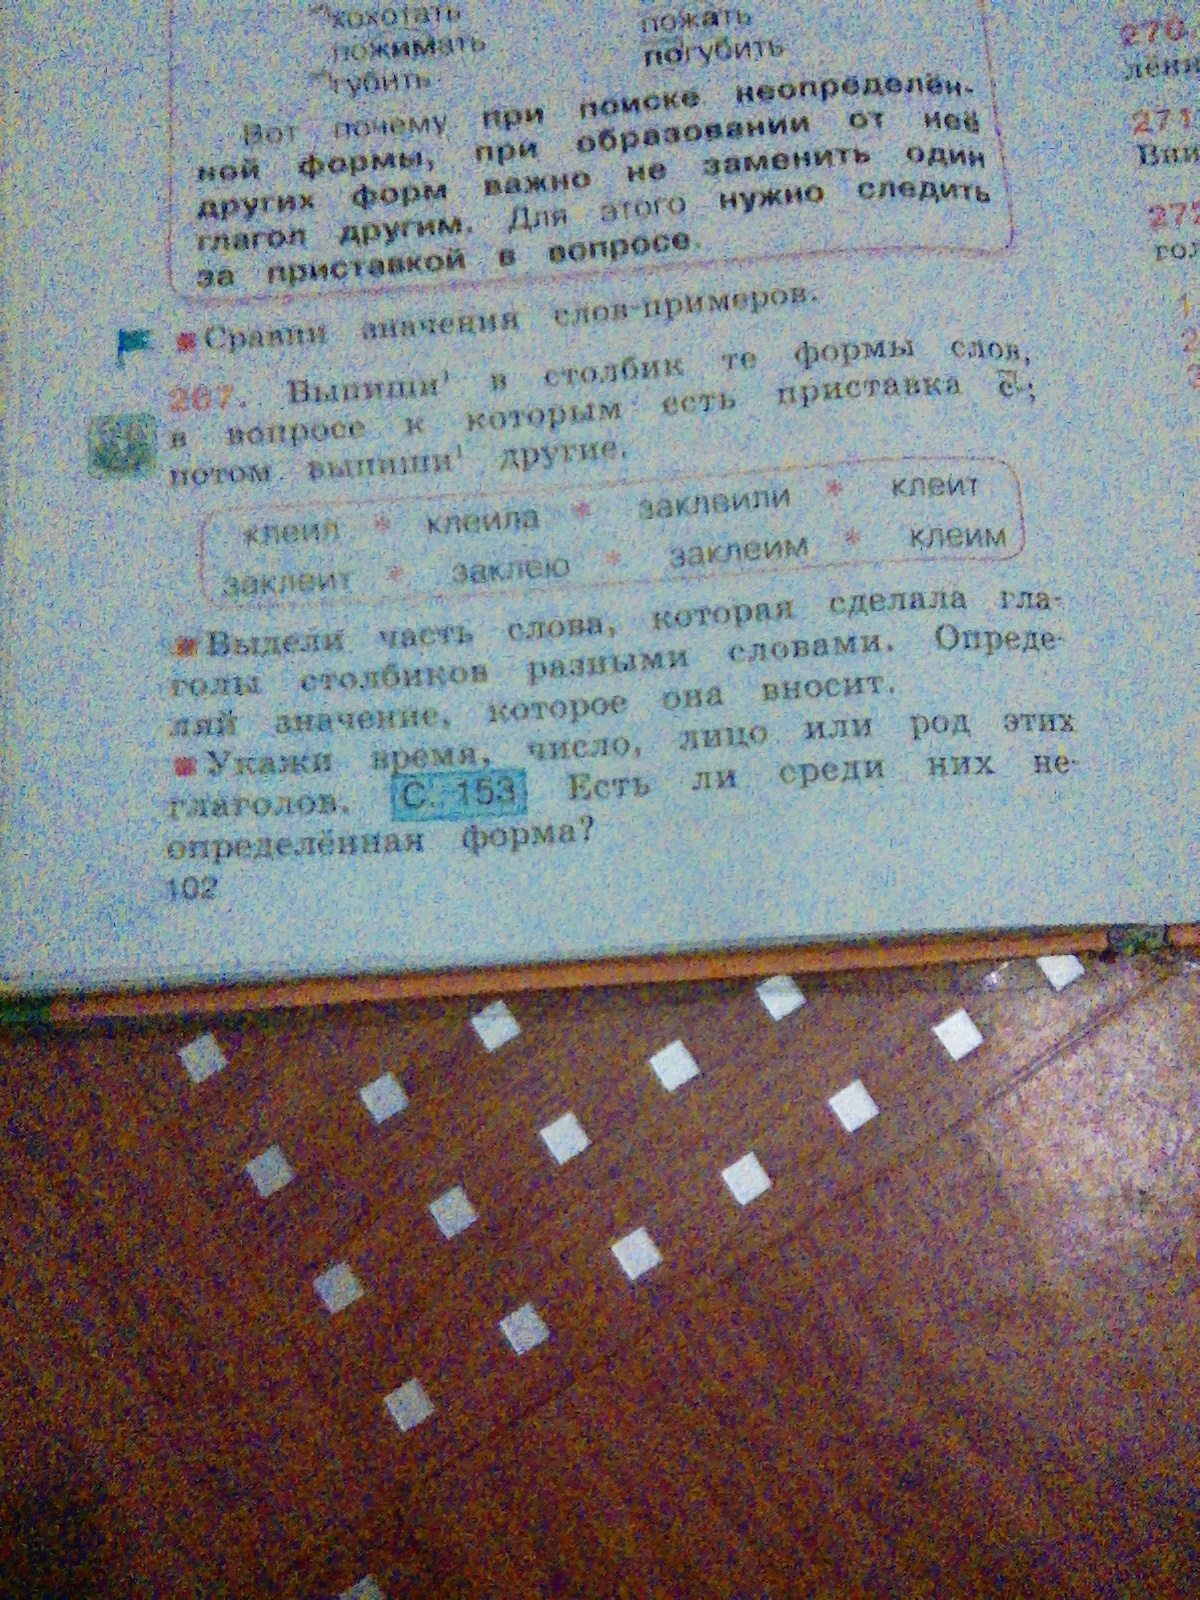 хохотать пожать
пожимать погубить
губить
Вот почему при поиске неопределён-
ной формы, при образовании от неё
других форм важно не заменить один
глагол другим. Для этого нужно следить
за приставкой в вопросе.
Сравни значения слов-примеров.
267. Выпиши¹ в столбик те формы слов,
в вопросе к которым есть приставка с-;
потом выпиши¹ другие.
клеил * клеила * заклеили * клеит
заклеит * заклею * заклеим * клеим
Выдели часть слова, которая сделала гла-
голы столбиков разными словами. Опреде-
ляй значение, которое она вносит.
Укажи время, число, лицо или род этих
глаголов. С. 153 Есть ли среди них не-
определённая форма?
102
270.
лённ
271
Вни
272
гол